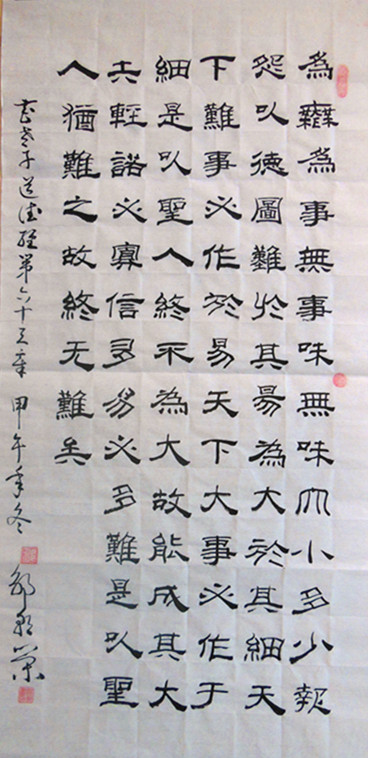 為無為事無事味無味大小多少報
怨以德圖難於其易為大於其細天
下難事必作於易天下大事必作于
細是以聖人終不為大故能成其大
夫輕諾必寡信多易必多難是以聖
人猶難之故終无難矣
老子道德经第六十三章 甲午年冬